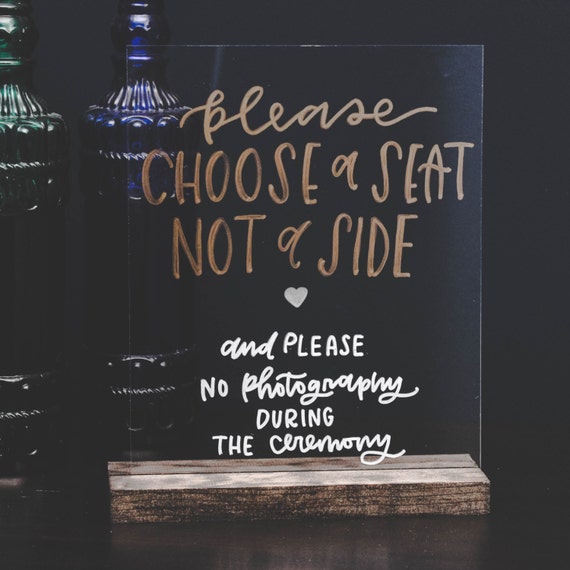 please
CHOOSE a SEAT
NOT a SIDE
and PLEASE
NO photography
DURING
THE ceremony